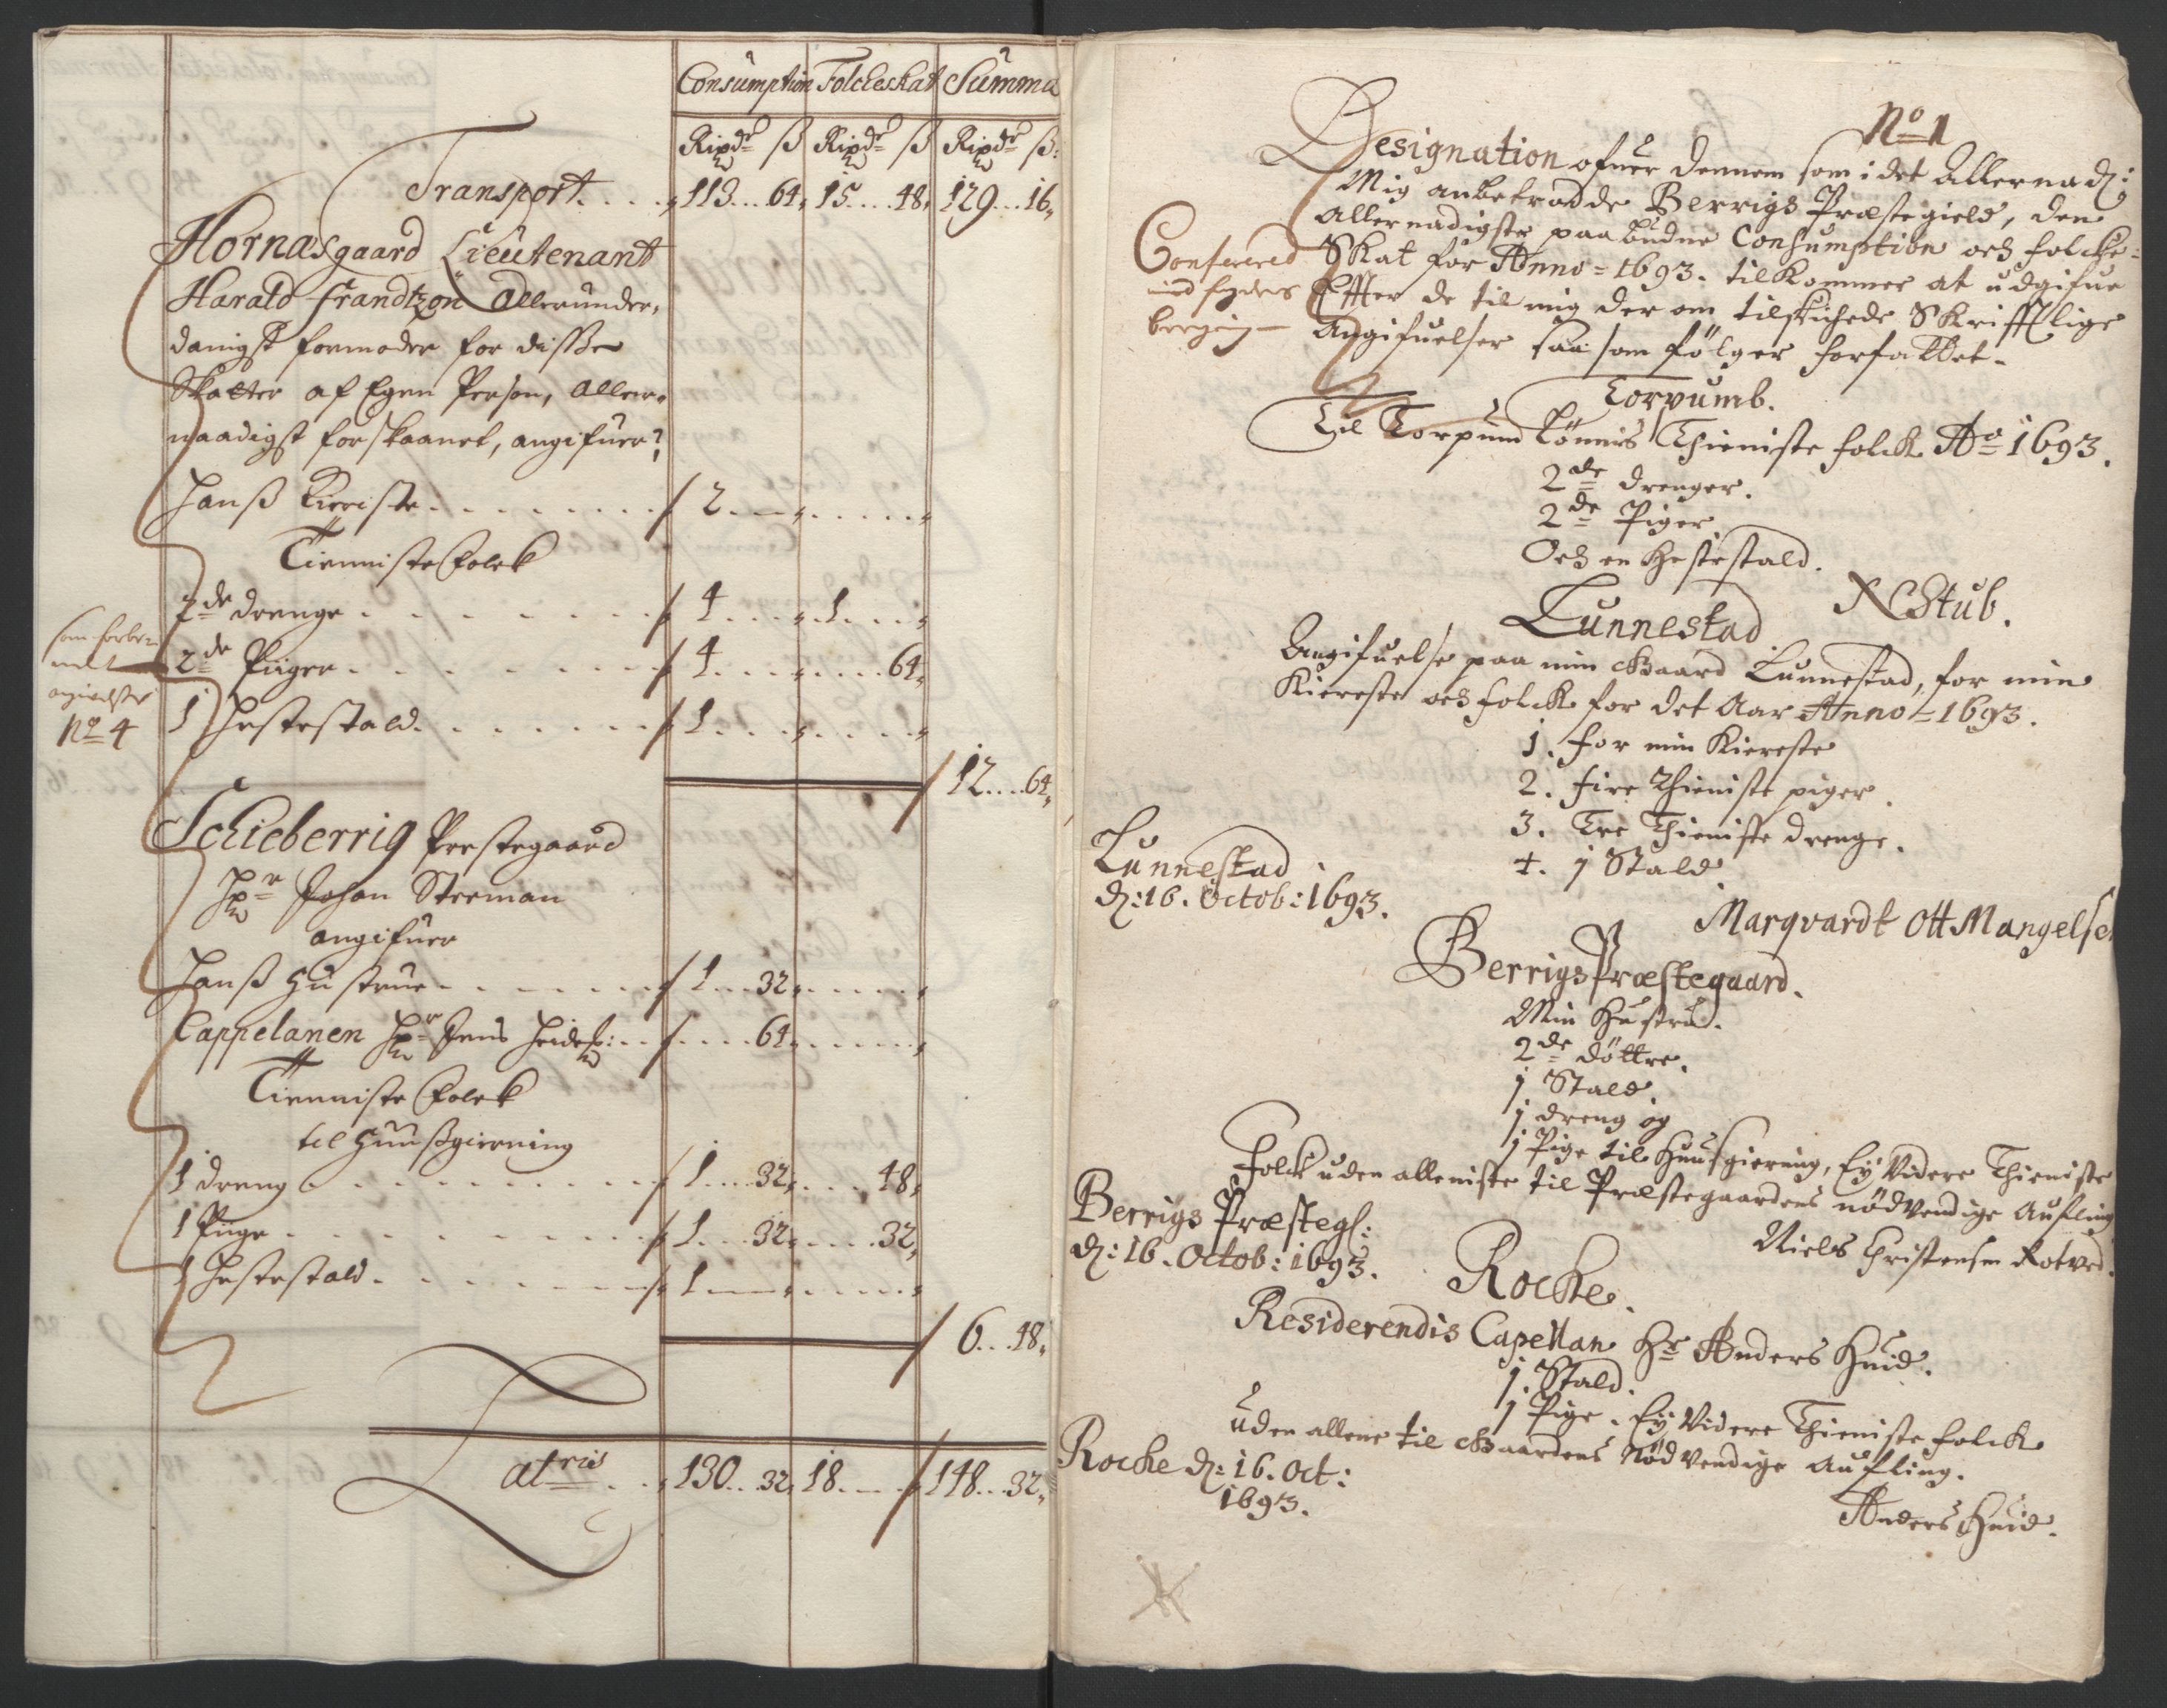 Consumption Folcheskat Summa
Rixdr ß Rixdr ß Rixdr ß:
Transport. . . . 113...64, 15....48, 129...16,
Hornæsgaard Lieutenant
Harald Frandtzon Allerunder,
danigst formoder for disse
Skatter af Egen Person, Aller,,
naadigst forskaanet, angifuer?
Hanß Kieriste . . . . . . . . 2
Tienniste Folck
2de drenge . . . . . . . 4 1
som forbe,,
meldt
angivelsse
No 4
2de Piiger . . . . . . . 4 64,
1 Hestestald. . . . . . . 1
12....64,
Schieberrig Prestegaard
Hr Johan Steeman
angifuer
Hanß Hustrue . . . . . . . 1...32,
Cappelanen Hr Jens . . 64
Tienniste Folck
til Huußgierning
1 dreng . . . . . . . . . 1....32, 48,
1 Piige . . . . . . . . . 1...32, 32,
1 Hestestald . . . . . . . 1
6...48,
Latris . . . 130..32, 18. 148...32,
No 1
Designation ofuer Dennem som i det Allernad:
Mig anbetrodde Berrigs Præstegield, den
Allernadigste paabudne Consumption och Folcke=
Skat for Anno=1693. tilkommer at udgifue
Effter de til mig der om tilskichede Skrifftlige
Angifuelser saa som følger forfattet.
Confererid
Torpumb.
Til Torpum Tømmis Thieniste folck Ao 1693.
2de drenger.
2de Piger
Och en Hestestald.
N Stub.
Lunnestad
Angifuelse paa min Gaard Lunnestad, for min
Kiereste och folck for det Aar Anno=1693.
1. for min Kiereste
2. fire Thieniste piger.
3. Tre Thieniste drenge.
4. 1 Stald
Lunnestad
d: 16. Octob: 1693.
Marqvardt Ott Mangelsen
Berrigs Præstegaard.
Min Hustru.
2de døttre.
1 Stald.
1 dreng og
1 Pige til Huusgierning, Ey Videre Thieniste
Folck uden alleniste til Præstegaardens nødvendige Aufling
Berrigs Præstegl:
d: 16. Octob: 1693.
Niels Christensen Rotved.
Rocke.
Residerendis Capellan Hr Anders Huid.
1. Stald.
1 Pige. Ey Videre Thieniste folck
uden allene til Gaardens Nødvendige Aufling.
Rocke d: 16. Oct:
1693.
Anders Huid.